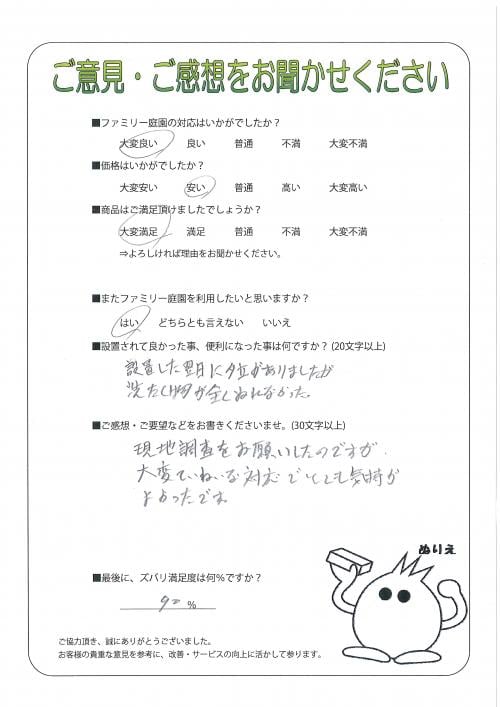 ご意見・ご感想をお聞かせください
■ファミリー庭園の対応はいかがでしたか？
大変良い 良い 普通 不満 大変不満
■価格はいかがでしたか？
大変安い 安い 普通 高い 大変高い
■商品はご満足頂けましたでしょうか？
大変満足 満足 普通 不満 大変不満
⇒よろしければ理由をお聞かせください。
■またファミリー庭園を利用したいと思いますか？
はい どちらとも言えない いいえ
■設置されて良かった事、便利になった事は何ですか？(20文字以上)
設置した翌日に夕立がありましたが
洗たく物が全くぬれなかった。
■ご感想・ご要望などをお書きくださいませ。(30文字以上)
現地調査をお願いしたのですが、
大変ていねいな対応でとても気持が
よかったです。
ぬりえ
■最後に、ズバリ満足度は何％ですか？
90 %
ご協力頂き、誠にありがとうございました。
お客様の貴重な意見を参考に、改善・サービスの向上に活かして参ります。